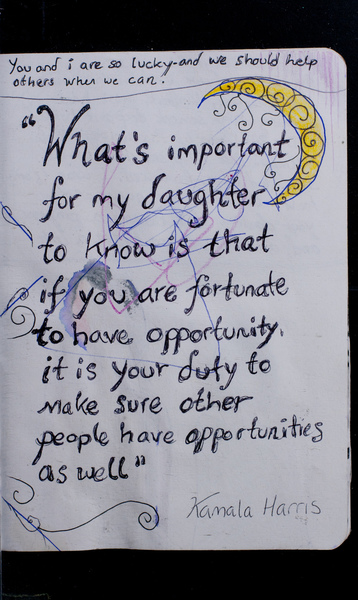 You and i are so lucky-and we should help
others when we can.
"What's important
for my daughter
to know is that
if you are fortunate
to have opportunity,
it is your duty to
make sure other
people have opportunities
as well"
Kamala Harris